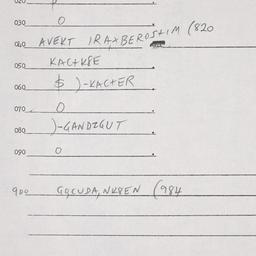 020
030 O
040 AVEKT IRAXBEROS IM (820
050 KACTKSE
060 $ )-KACTER
070 O
080 )-GANDZGUT
090 O
900 GQCUDA, NKSEN (984